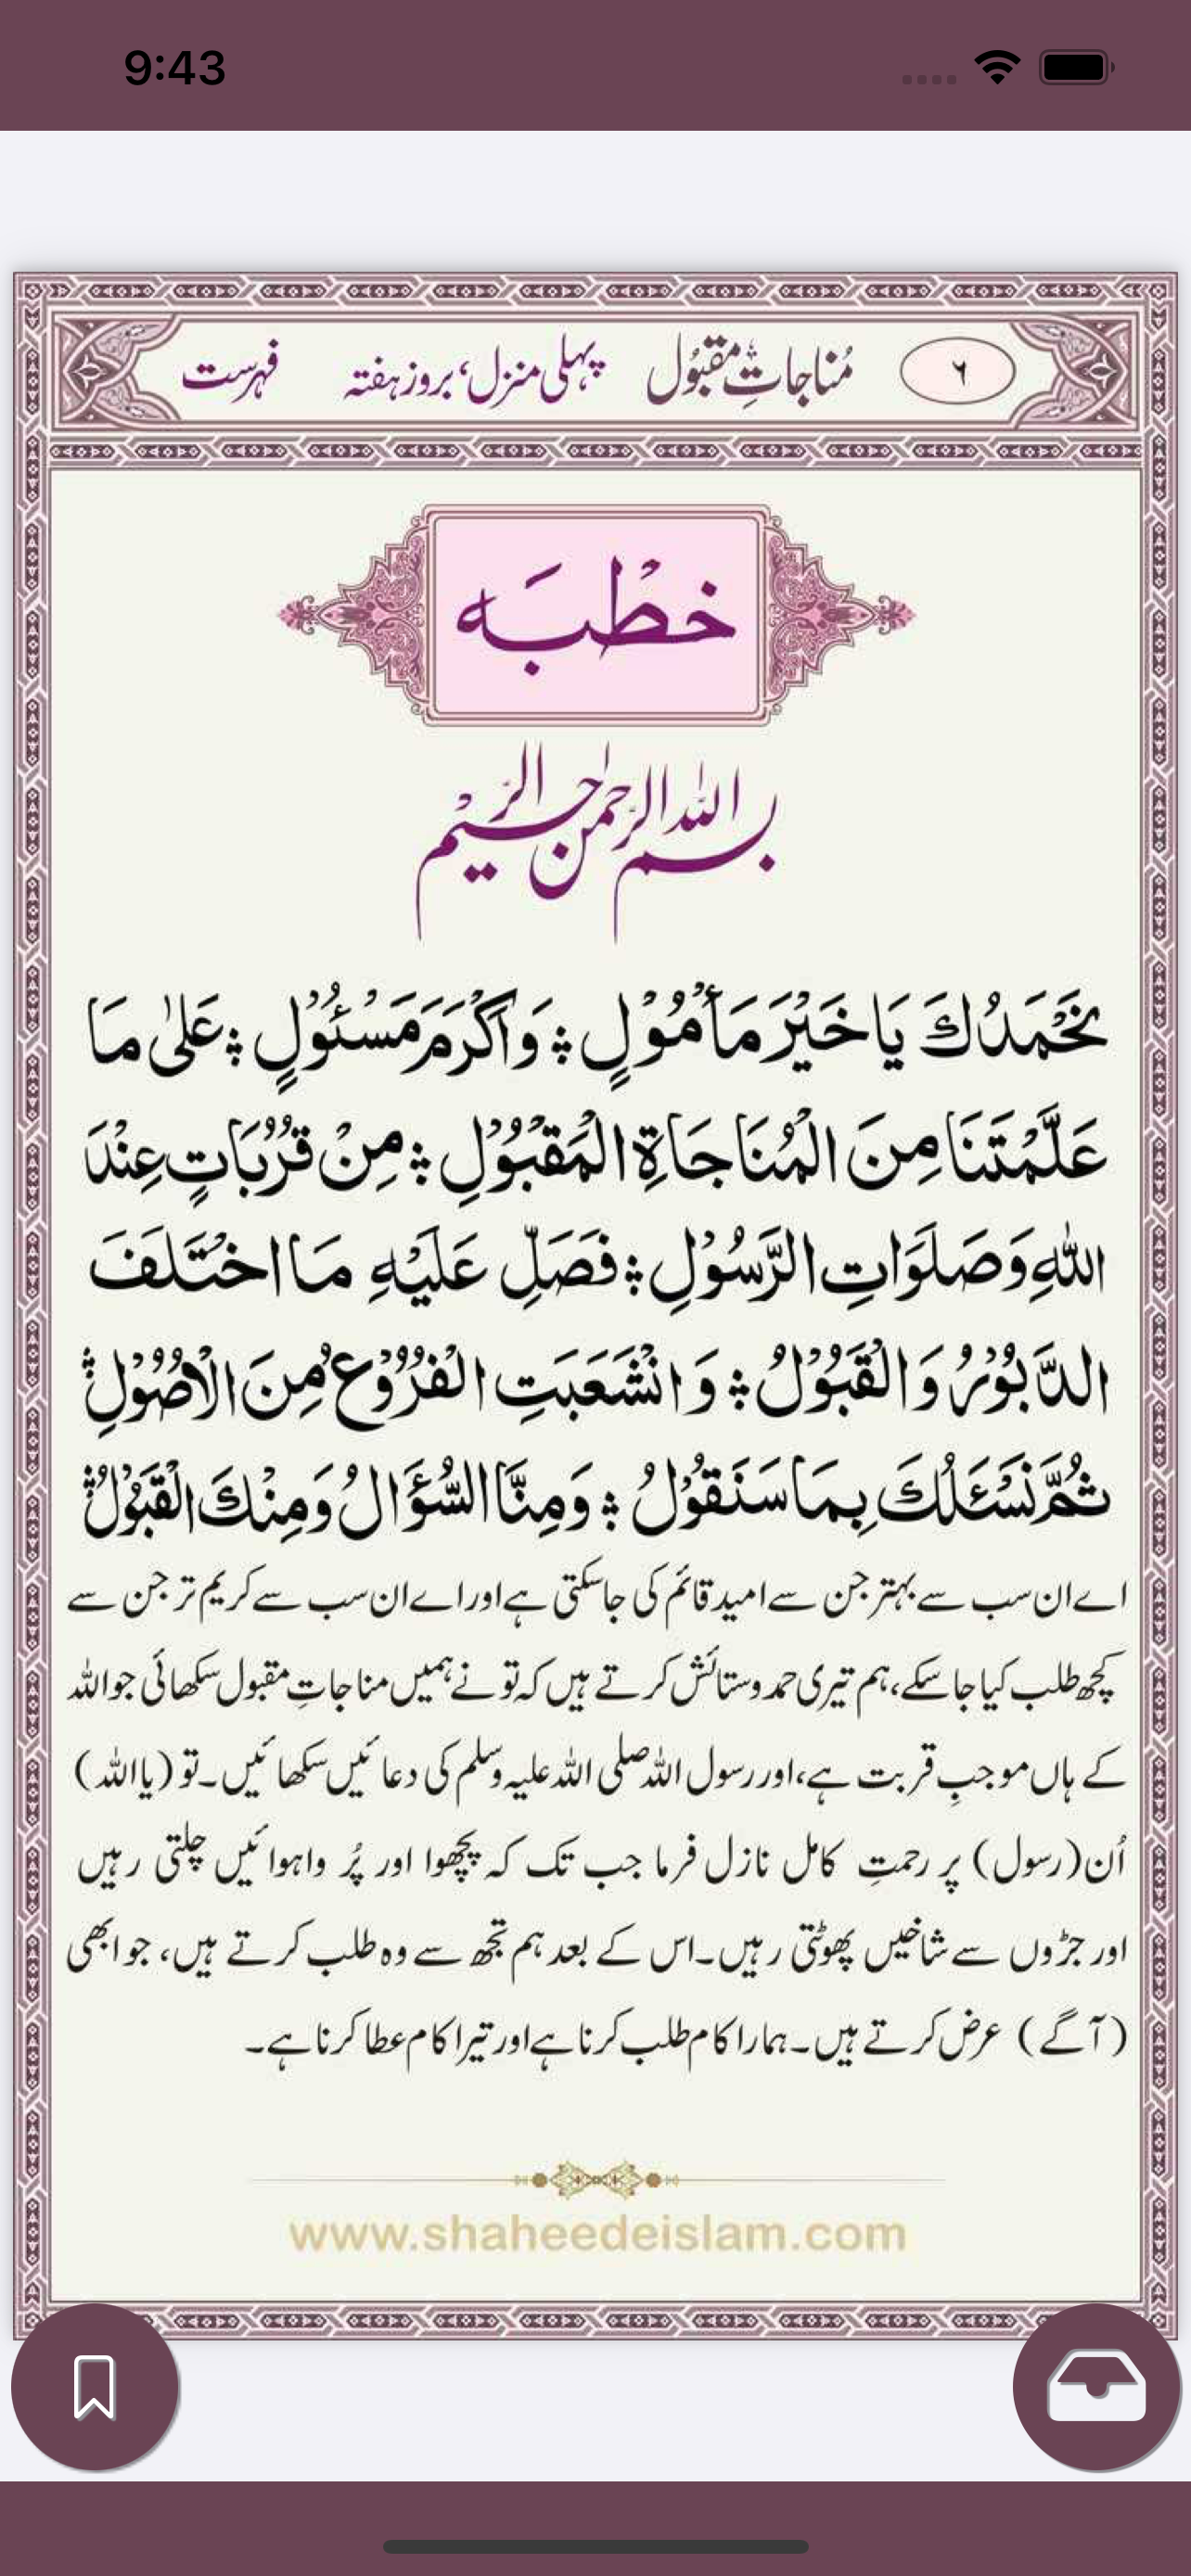 9:43
۶ مُناجاتِ مقبُول پہلی منزل، بروز ہفتہ فہرست
خطْبَه
بسم الله الرحمٰن الرحيم
نَحْمَدُكَ يَا خَيْرَ مَأْمُوْلٍ ۞ وَاَكْرَمَ مَسْئُوْلٍ ۞ عَلٰى مَا
عَلَّمْتَنَا مِنَ الْمُنَاجَاةِ الْمَقْبُوْلِ ۞ مِنْ قُرُبَاتٍ عِنْدَ
اللهِ وَصَلَوَاتِ الرَّسُوْلِ ۞ فَصَلِّ عَلَيْهِ مَا اخْتَلَفَ
الدَّبُوْرُ وَالْقَبُوْلُ ۞ وَانْشَعَبَتِ الْفُرُوْعُ مِنَ الْاُصُوْلِ ۞
ثُمَّ نَسْئَلُكَ بِمَا سَنَقُوْلُ ۞ وَمِنَّا السُّؤَالُ وَمِنْكَ الْقَبُوْلُ ۞
اے ان سب سے بہتر جن سے امید قائم کی جاسکتی ہے اور اے ان سب سے کریم تر جن سے
کچھ طلب کیا جا سکے، ہم تیری حمد وستائش کرتے ہیں کہ تو نے ہمیں مناجاتِ مقبول سکھائی جو اللہ
کے ہاں موجبِ قربت ہے، اور رسول اللہ صلی اللہ علیہ وسلم کی دعائیں سکھائیں۔ تو (یا اللہ)
اُن (رسول) پر رحمتِ کامل نازل فرما جب تک کہ پچھوا اور پُر واہوائیں چلتی رہیں
اور جڑوں سے شاخیں پھوٹتی رہیں۔ اس کے بعد ہم تجھ سے وہ طلب کرتے ہیں، جو ابھی
(آگے) عرض کرتے ہیں۔ ہمارا کام طلب کرنا ہے اور تیرا کام عطا کرنا ہے۔
www.shaheedeislam.com